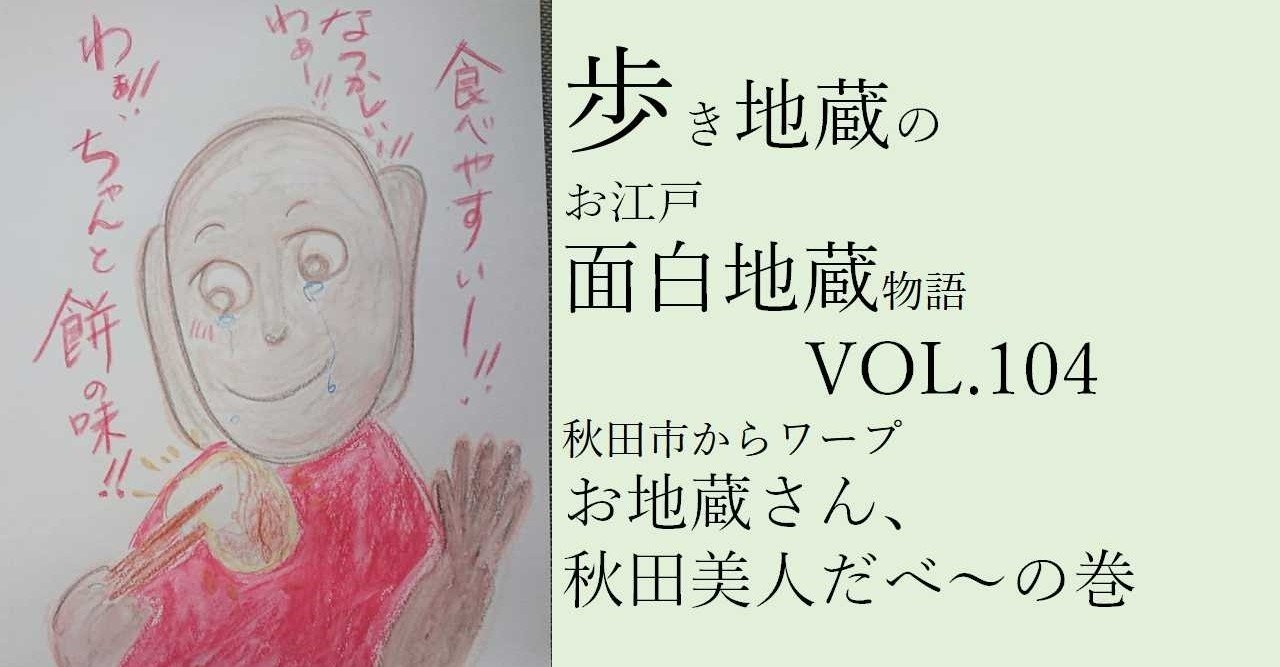 食べやすいー!!
なつかしい!!
わぁー!!
わぁ!!、ちゃんと餅の味!!
歩き地蔵の
お江戸
面白地蔵物語
VOL.104
秋田市からワープ
お地蔵さん、
秋田美人だべ～の巻